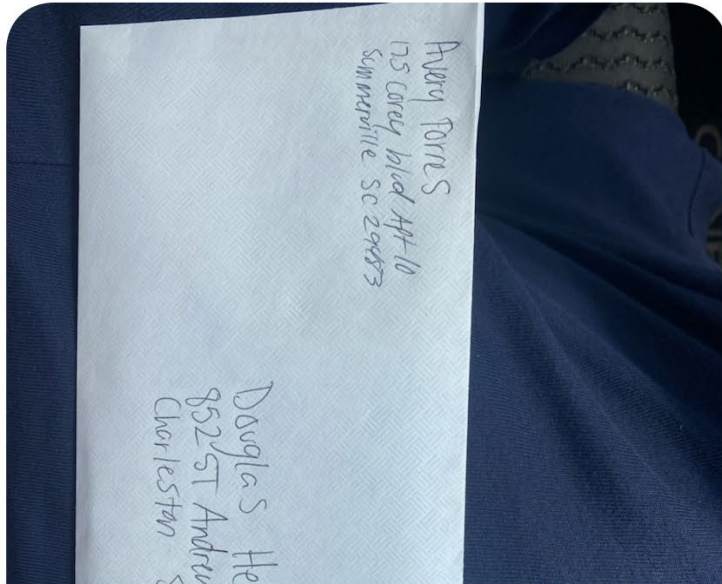 Avery Torres
175 Corey blvd Apt 10
Summerville SC 29483
Douglas He
852 ST Andrew
Charleston S